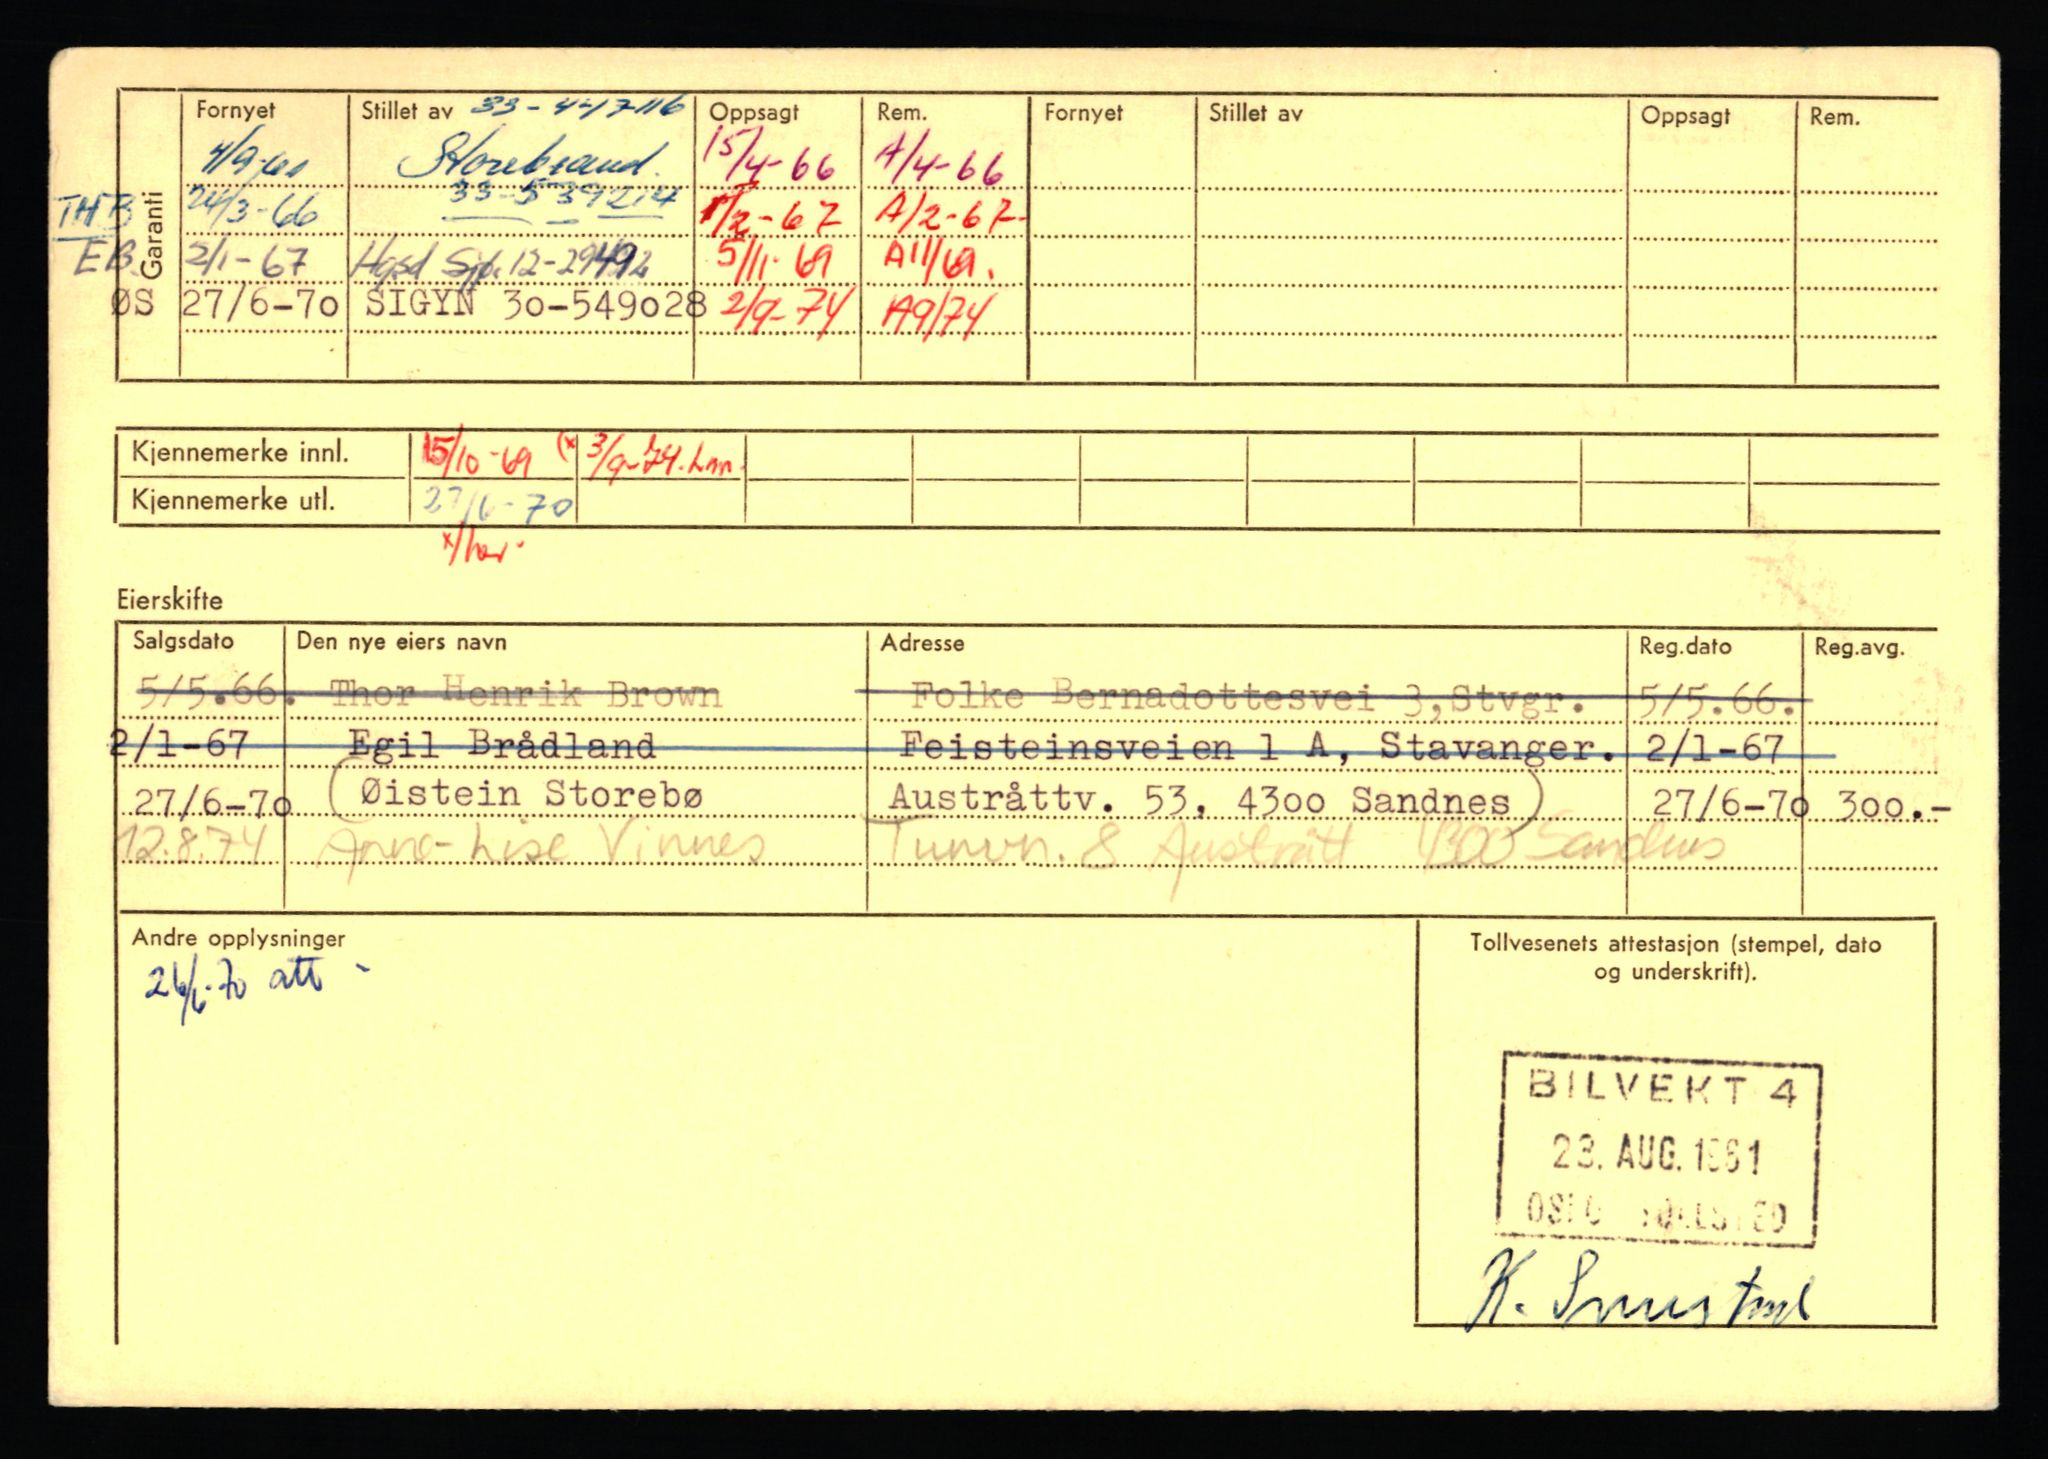 Fornyet Stillet av 33-447116 Oppsagt Rem. Fornyet Stillet av Oppsagt Rem.
Garanti
Storebrand. 15/4-66 A/4-66
THB 24/3-66 33-539214 1/2-67 A/2-67-
EB 2/1-67 Hgsd Sjø. 5/11-69 A11/69.
ØS 27/6-70 SIGYN 30-549028 2/9-74 A9/74
Kjennemerke innl. 15/10-69 (x 3/9-74.
Kjennemerke utl. 27/6-70
Eierskifte
Salgsdato Den nye eiers navn Adresse Reg.dato Reg.avg.
5/5.66. Thor Henrik Brown Folke Bernadottesvei 3,Stvgr. 5/5.66.
2/1-67 Egil Brådland Feisteinsveien 1 A, Stavanger. 2/1-67
27/6-70 (Øistein Storebø Austråttv. 53, 4300 Sandnes) 27/6-70 300.-
12.8.74 Anne-Lise Vinnes Tunvn. 8 Austrått 4300 Sandnes
Andre opplysninger
26/6-70 att -
Tollvesenets attestasjon (stempel, dato
og underskrift).
BILVEKT 4
23. AUG. 1961
OSLO
K.